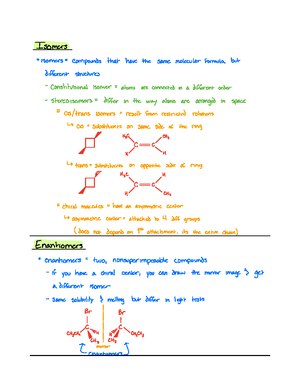 Isomers
* isomers = compounds that have the same molecular formula, but
different structures
- Constitutional isomer = atoms are connected in a different order
- stereoisomers = differ in the way atoms are arranged in space
cis/trans isomers = result from restricted rotations
↳ cis = substituents on same side of the ring
H₃C CH₃
C=C
H H
↳ trans = substituents on opposite side of ring
H₃C H
C=C
H CH₃
* chiral molecules = have an asymmetric center
↳ asymmetric center = attached to 4 diff groups
(does not depend on 1st attachment, its the entire chain)
Enantiomers
* enantiomers = two, nonsuperimposable compounds
- if you have a chiral center, you can draw the mirror image & get
a different isomer
- same solubility & melting but differ in light tests
Br Br
C C
CH₃CH₂ H H CH₂CH₃
CH₃ CH₃
mirror
enantiomers